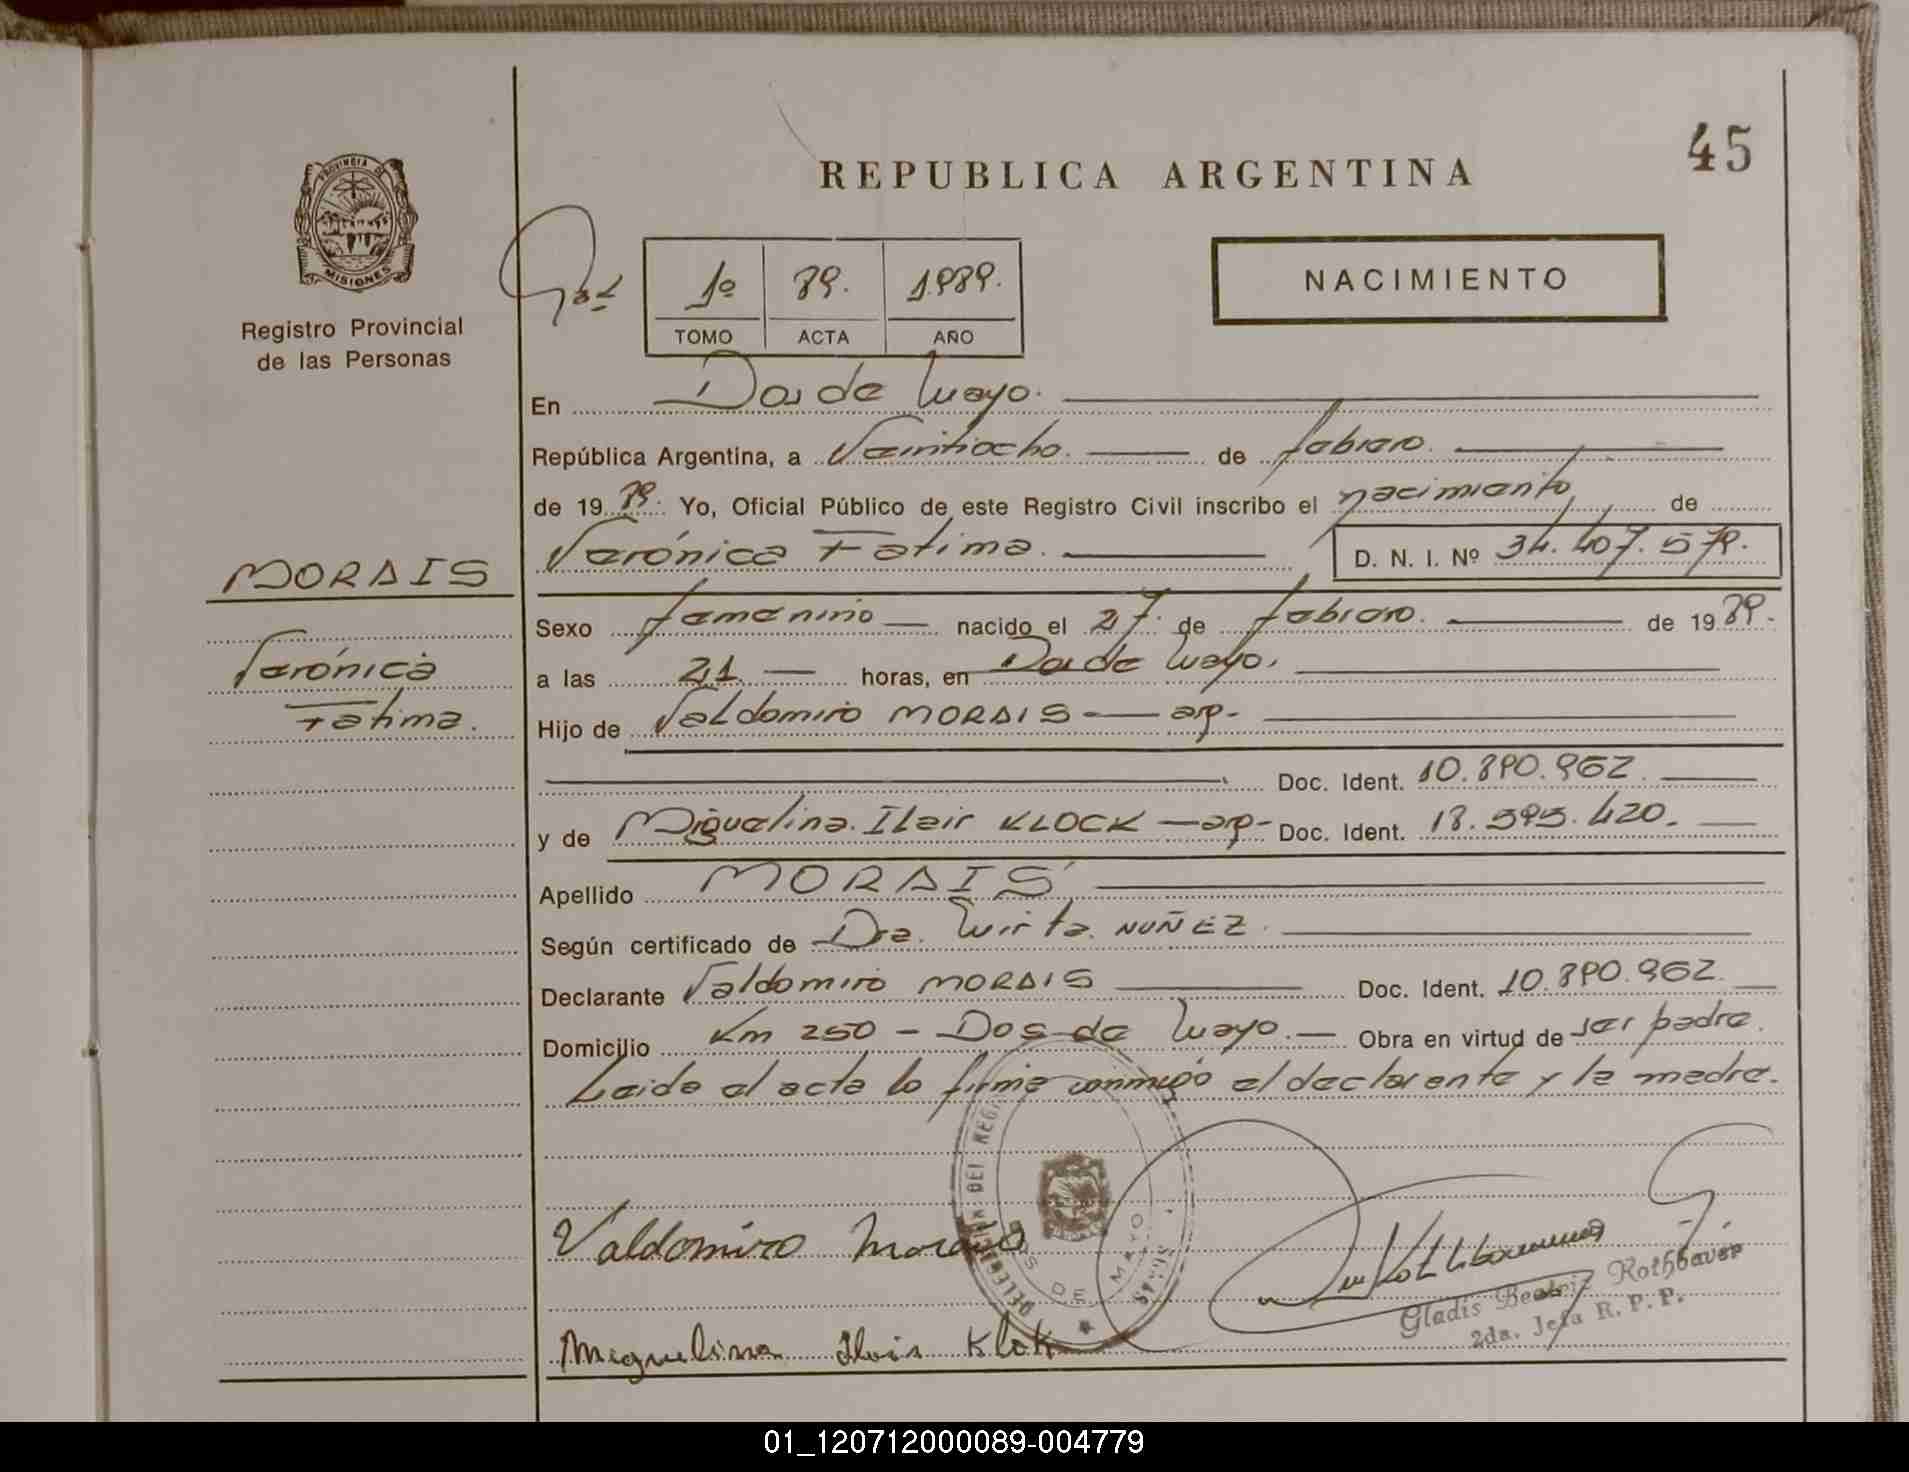 45
REPUBLICA ARGENTINA
PROVINCIA DE
MISIONES
Registro Provincial
de las Personas
1º 89. 1989.
TOMO ACTA AÑO
NACIMIENTO
En Dos de Mayo.
República Argentina, a Veintiocho. de febrero.
de 1989. Yo, Oficial Público de este Registro Civil inscribo el nacimiento de
Verónica Fatima. D. N. I. Nº 34.407.579.
MORAIS
Verónica
Fatima.
Sexo femenino nacido el 27. de febrero. de 1989.
a las 21 horas, en Dos de Mayo.
Hijo de Valdomiro MORAIS — arg-
Doc. Ident. 10.890.962.
y de Miguelina Ilair KLOCK — arg- Doc. Ident. 18.595.420.
Apellido MORAIS
Según certificado de Dra. Mirta NUÑEZ.
Declarante Valdomiro MORAIS Doc. Ident. 10.890.962.
Domicilio Km 250 - Dos de Mayo. Obra en virtud de ser padre.
Leida el acta lo firma conmigo el declarante y la madre.
DEL REG
DOS DE MAYO
Valdomiro Morais
Gladis Beatriz Rothbauer
2da. Jefa R. P. P.
Miguelina Klok
01_120712000089-004779